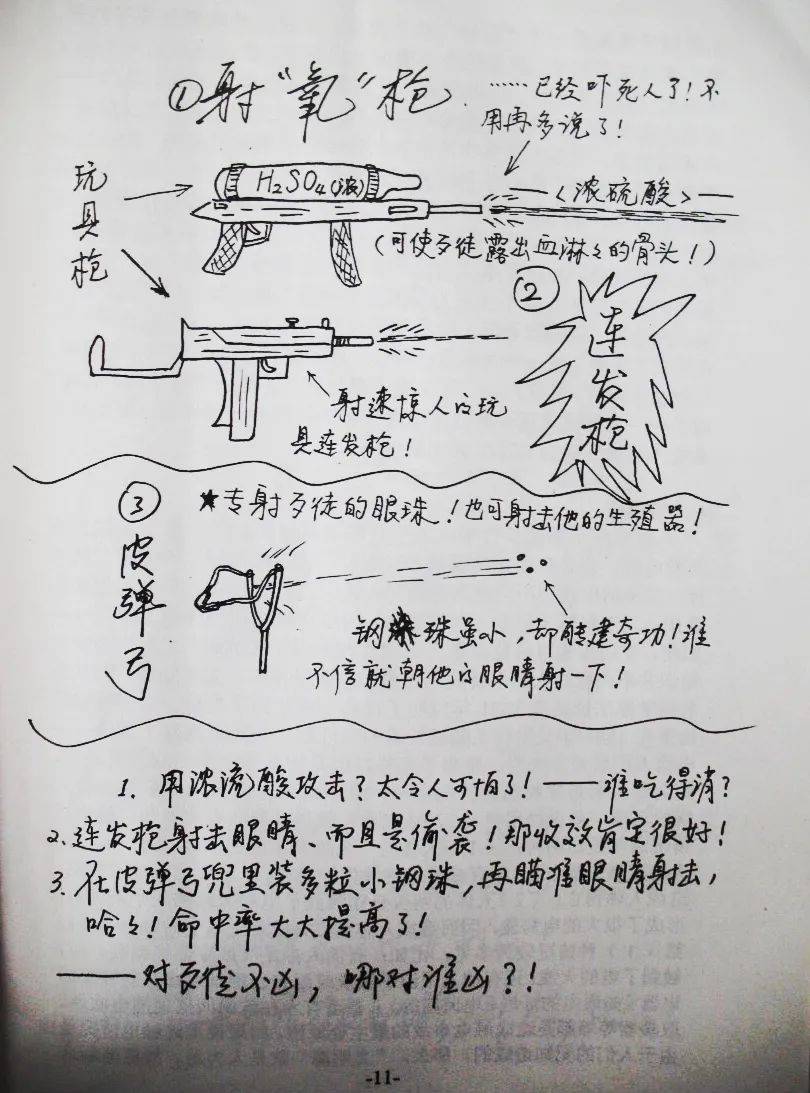 ①射“氧”枪
……已经吓死人了！不
用再多说了！
玩具枪
H₂SO₄(浓)
—〈浓硫酸〉—
（可使歹徒露出血淋々的骨头！）
②
连发枪
射速惊人的玩
具连发枪！
③
皮弹弓
★专射歹徒的眼珠！也可射击他的生殖器！
钢珠虽小，却能建奇功！谁
不信就朝他的眼睛射一下！
1. 用浓流酸攻击？太令人可怕了！——谁吃得消？
2. 连发枪射击眼睛、而且是偷袭！那收效肯定很好！
3. 在皮弹弓兜里装多粒小钢珠，再瞄准眼睛射击，
哈々！命中率大大提高了！
——对歹徒不凶，哪对谁凶？！
-11-